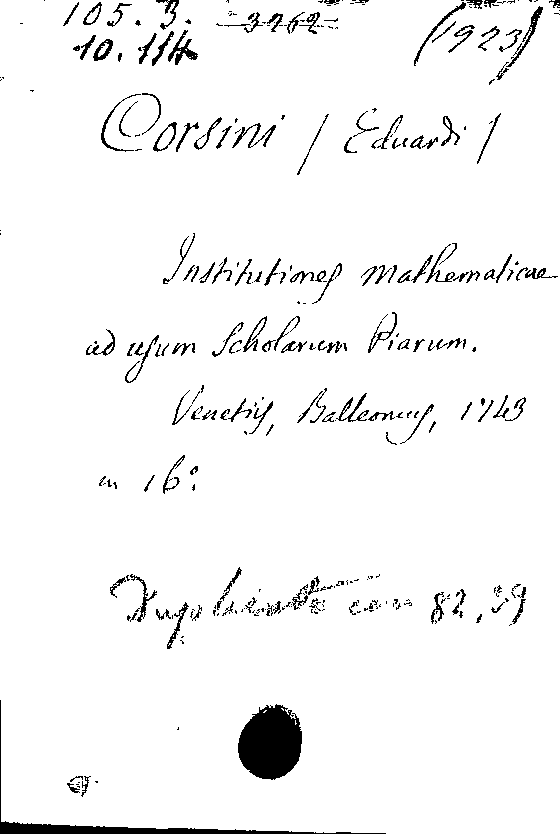 105. 3. 3262 (1923)
10. 114
Corsini / Eduardi /
Institutiones mathematicae
ad usum Scholarum Piarum.
Venetiis, Balleonius, 1743
in 16º
con 82,39